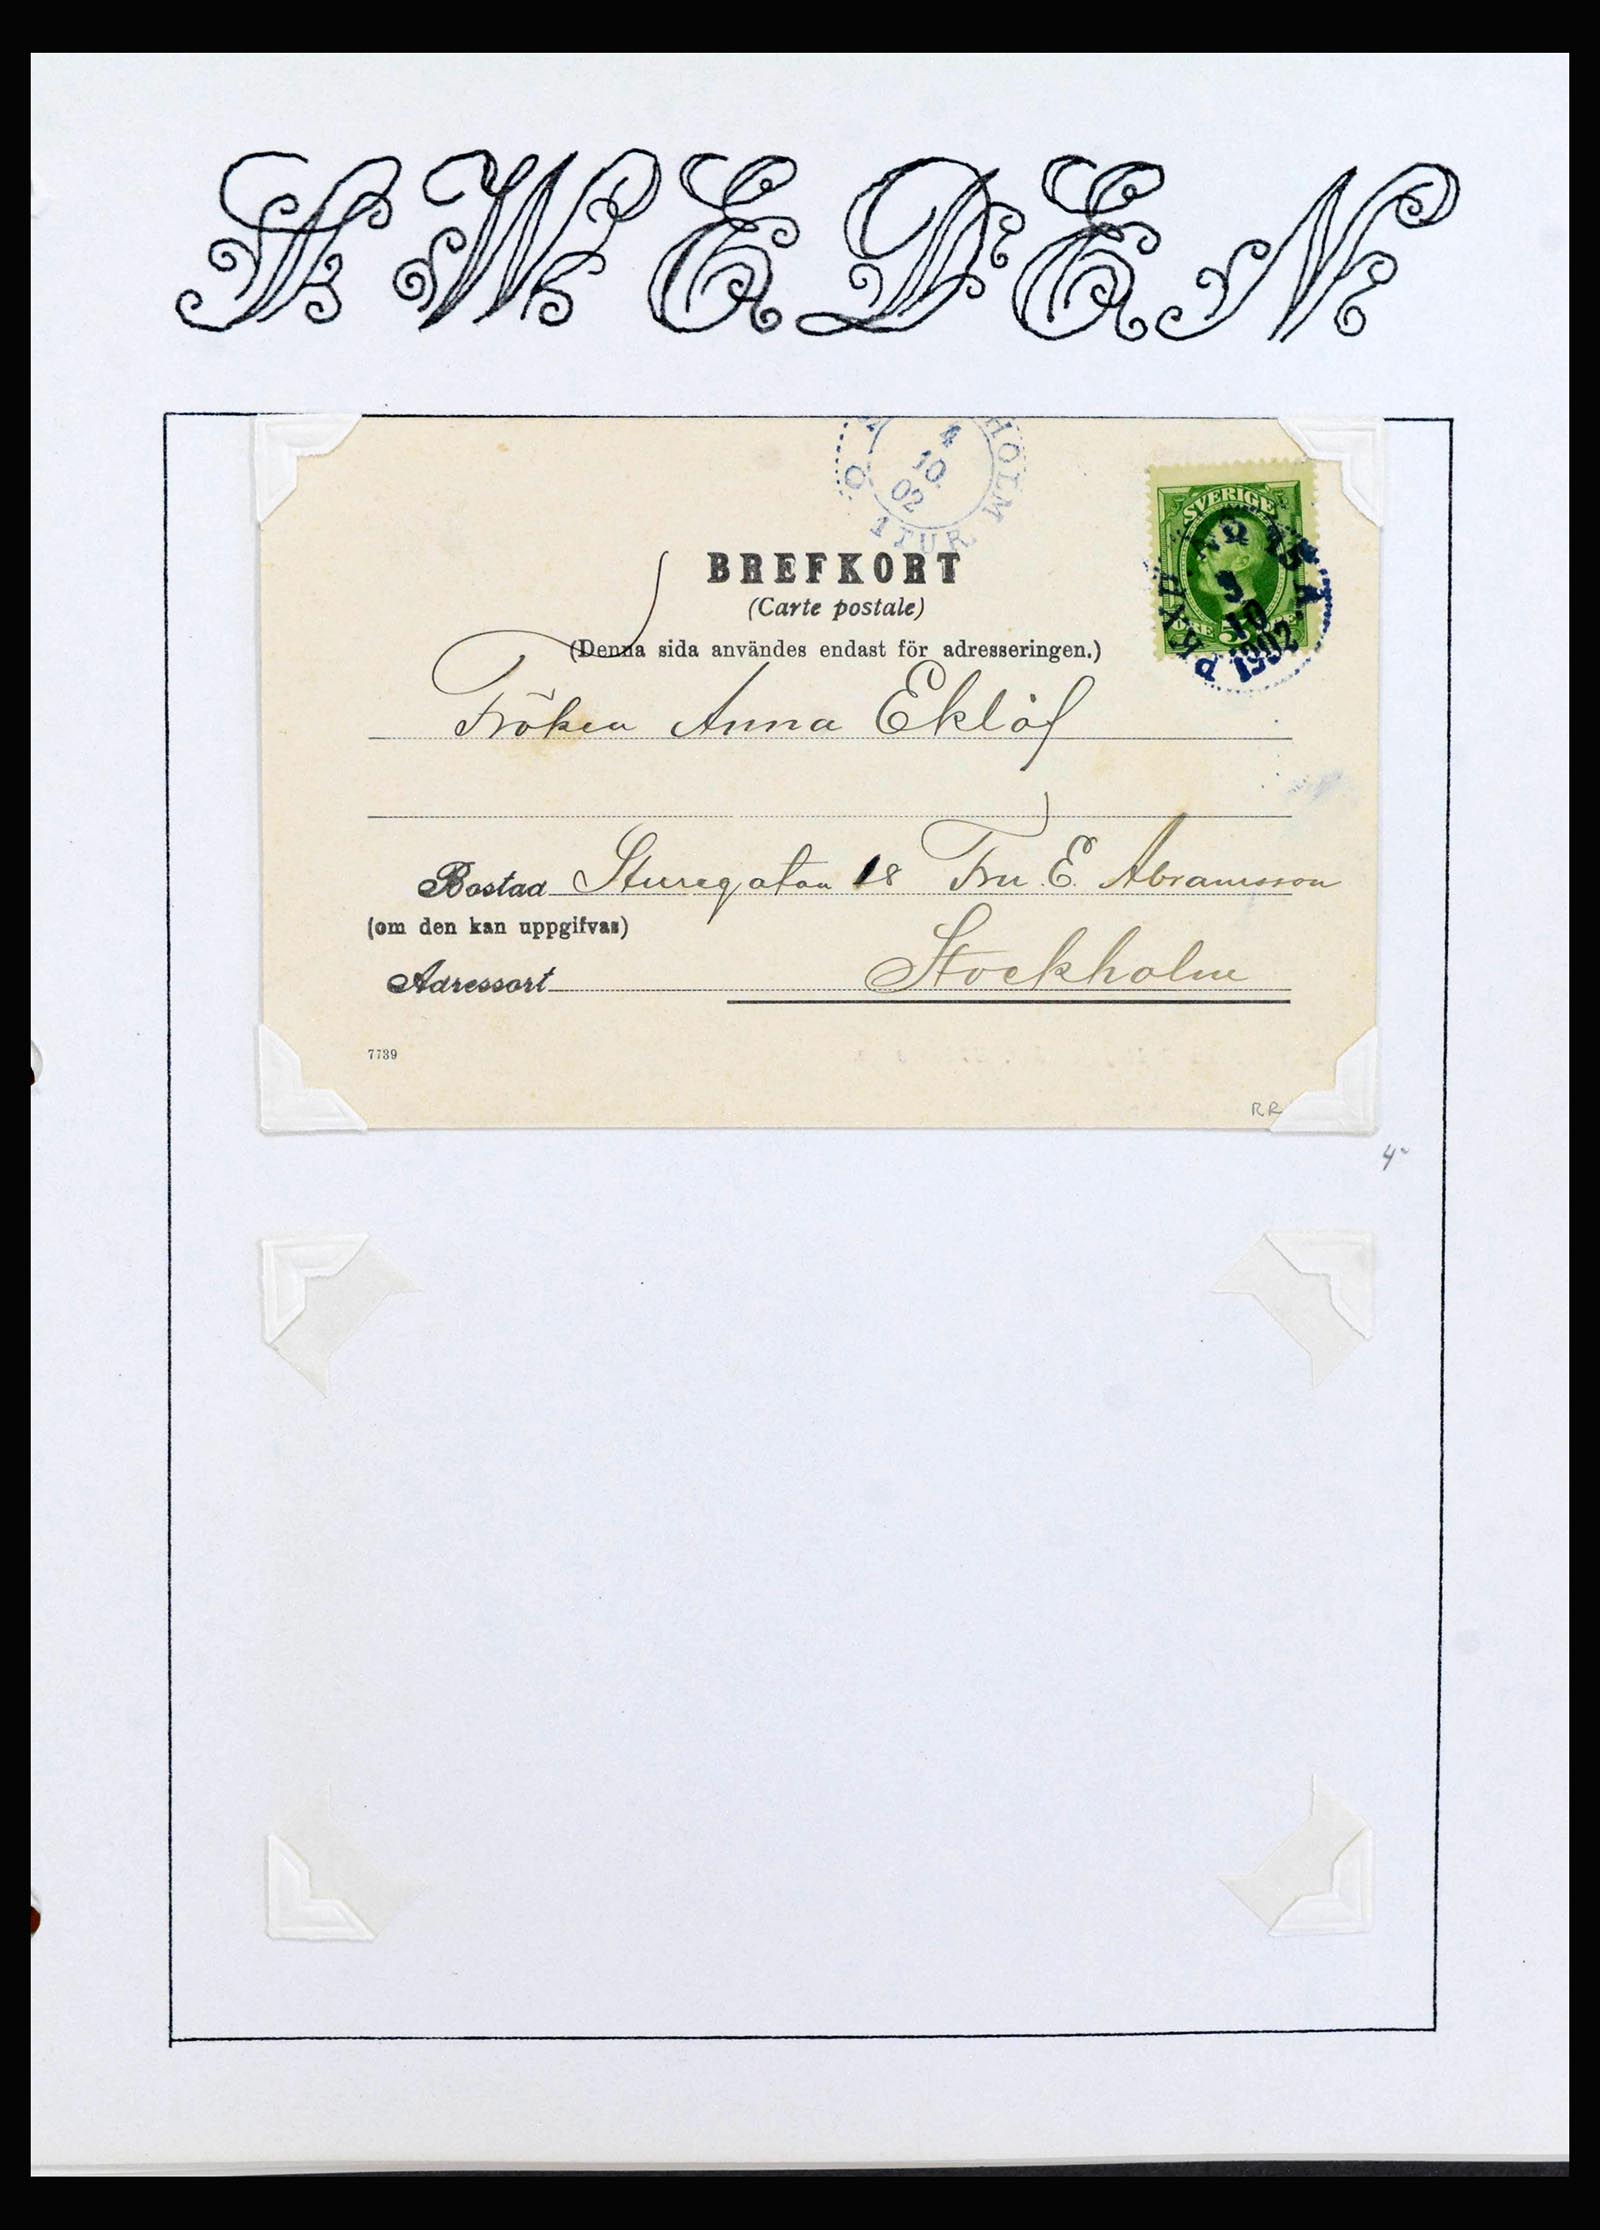 SWEDEN
HOLM
4
10
02
1 TUR
SVERIGE
ÖRE 5
PKXP. Nº 15
3
10
1902
BREFKORT
(Carte postale)
(Denna sida användes endast för adresseringen.)
Fröken Anna Eklöf
Bostad Sturegatan 18 Fru E. Abramsson
(om den kan uppgifvas)
Adressort Stockholm
7739
RR
4-